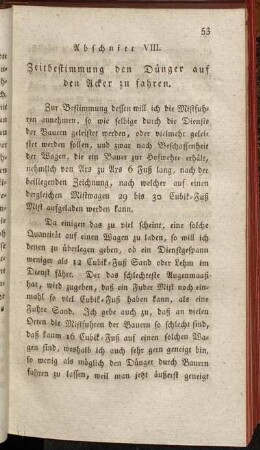 53
Abschnitt VIII.
Zeitbestimmung den Dünger auf
den Acker zu fahren.
Zur Bestimmung dessen will ich die Mistfuh-
ren annehmen, so wie selbige durch die Dienste
der Bauern geleistet werden, oder vielmehr gelei-
stet werden sollen, und zwar nach Beschaffenheit
der Wagen, die ein Bauer zur Hofwehre erhält,
nehmlich von Axs zu Axs 6 Fuß lang, nach der
beiliegenden Zeichnung, nach welcher auf einen
dergleichen Mistwagen 29 bis 30 Cubik-Fuß
Mist aufgeladen werden kann.
Da einigen das zu viel scheint, eine solche
Quantität auf einen Wagen zu laden, so will ich
denen zu überlegen geben, ob ein Dienstgespann
weniger als 12 Cubik-Fuß Sand oder Lehm im
Dienst fährt. Der das schlechteste Augenmaaß
hat, wird zugeben, daß ein Fuder Mist noch ein-
mahl so viel Cubik-Fuß haben kann, als eine
Fuhre Sand. Ich gebe auch zu, daß an vielen
Orten die Mistfuhren der Bauern so schlecht sind,
daß kaum 16 Cubik-Fuß auf einen solchen Wa-
gen sind, weshalb ich auch sehr gern geneigt bin,
so wenig als möglich den Dünger durch Bauern
fahren zu lassen, weil man jetzt äußerst geneigt